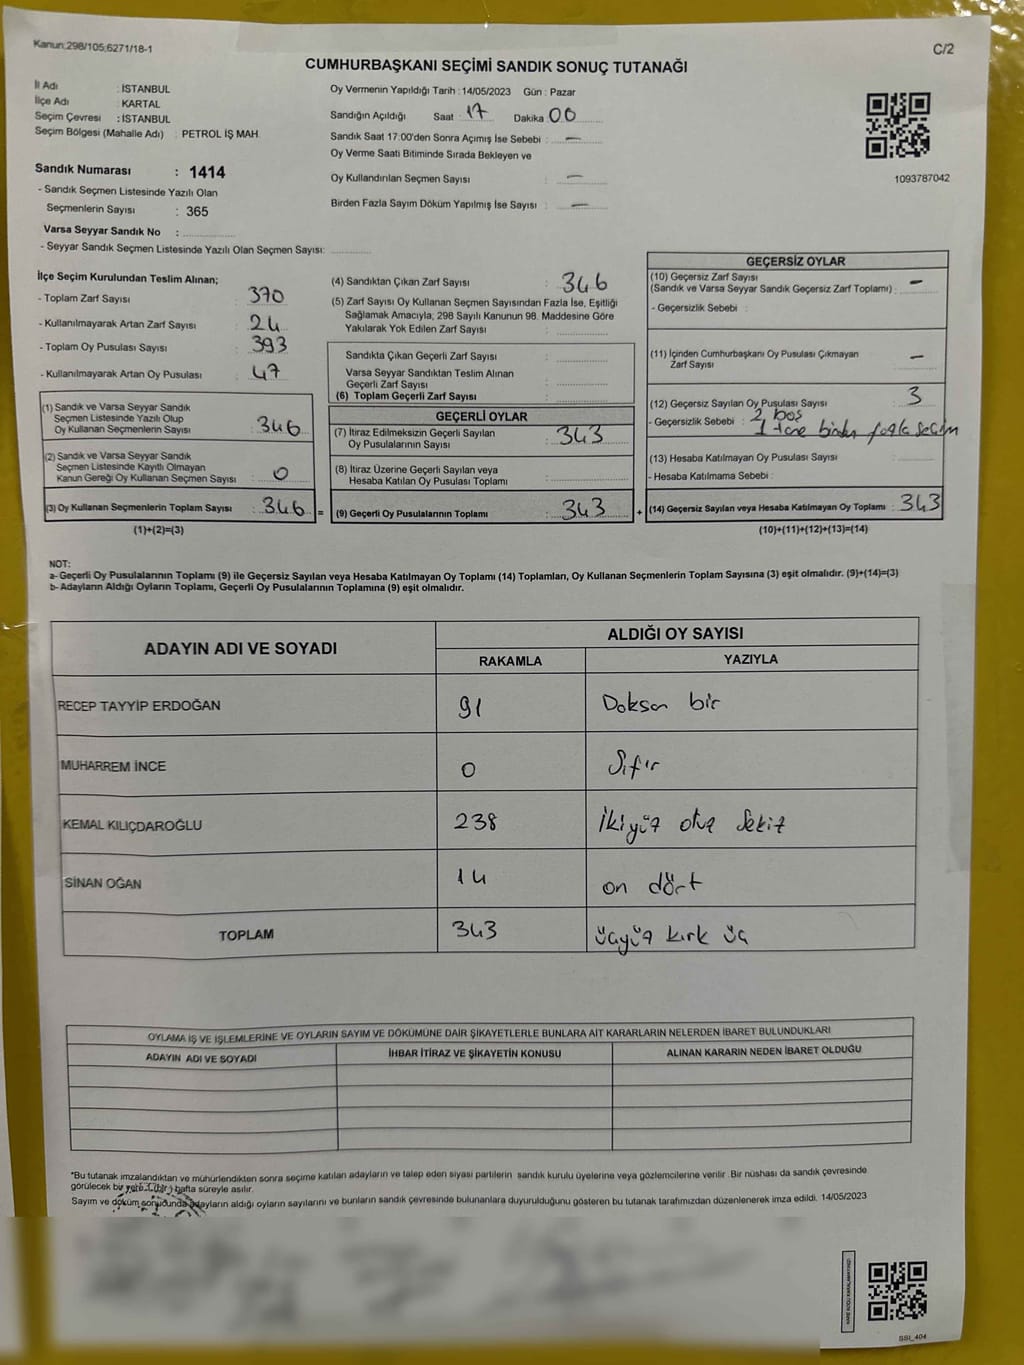 Kanun:298/105;6271/18-1
C/2
CUMHURBAŞKANI SEÇİMİ SANDIK SONUÇ TUTANAĞI
İl Adı : İSTANBUL
İlçe Adı : KARTAL
Seçim Çevresi : İSTANBUL
Seçim Bölgesi (Mahalle Adı) : PETROL İŞ MAH.
Sandık Numarası : 1414
- Sandık Seçmen Listesinde Yazılı Olan
Seçmenlerin Sayısı : 365
Varsa Seyyar Sandık No :
- Seyyar Sandık Seçmen Listesinde Yazılı Olan Seçmen Sayısı:
Oy Vermenin Yapıldığı Tarih : 14/05/2023 Gün : Pazar
Sandığın Açıldığı Saat : 17 Dakika 00
Sandık Saat 17:00'den Sonra Açımış İse Sebebi : —
Oy Verme Saati Bitiminde Sırada Bekleyen ve
Oy Kullandırılan Seçmen Sayısı : —
Birden Fazla Sayım Döküm Yapılmış İse Sayısı : —
1093787042
İlçe Seçim Kurulundan Teslim Alınan;
- Toplam Zarf Sayısı : 370
- Kullanılmayarak Artan Zarf Sayısı : 24
- Toplam Oy Pusulası Sayısı : 393
- Kullanılmayarak Artan Oy Pusulası : 47
(1) Sandık ve Varsa Seyyar Sandık
Seçmen Listesinde Yazılı Olup
Oy Kullanan Seçmenlerin Sayısı : 346
(2) Sandık ve Varsa Seyyar Sandık
Seçmen Listesinde Kayıtlı Olmayan
Kanun Gereği Oy Kullanan Seçmen Sayısı : 0
(3) Oy Kullanan Seçmenlerin Toplam Sayısı : 346 =
(1)+(2)=(3)
(4) Sandıktan Çıkan Zarf Sayısı : 346
(5) Zarf Sayısı Oy Kullanan Seçmen Sayısından Fazla İse, Eşitliği
Sağlamak Amacıyla; 298 Sayılı Kanunun 98. Maddesine Göre
Yakılarak Yok Edilen Zarf Sayısı :
Sandıkta Çıkan Geçerli Zarf Sayısı :
Varsa Seyyar Sandıktan Teslim Alınan
Geçerli Zarf Sayısı :
(6) Toplam Geçerli Zarf Sayısı :
GEÇERLİ OYLAR
(7) İtiraz Edilmeksizin Geçerli Sayılan
Oy Pusulalarının Sayısı : 343
(8) İtiraz Üzerine Geçerli Sayılan veya
Hesaba Katılan Oy Pusulası Toplamı :
(9) Geçerli Oy Pusulalarının Toplamı : 343 +
GEÇERSİZ OYLAR
(10) Geçersiz Zarf Sayısı
(Sandık ve Varsa Seyyar Sandık Geçersiz Zarf Toplamı) : —
- Geçersizlik Sebebi :
(11) İçinden Cumhurbaşkanı Oy Pusulası Çıkmayan
Zarf Sayısı : —
(12) Geçersiz Sayılan Oy Pusulası Sayısı : 3
- Geçersizlik Sebebi : 2 boş
1 tane birden fazla seçim
(13) Hesaba Katılmayan Oy Pusulası Sayısı :
- Hesaba Katılmama Sebebi :
(14) Geçersiz Sayılan veya Hesaba Katılmayan Oy Toplamı : 343
(10)+(11)+(12)+(13)=(14)
NOT:
a- Geçerli Oy Pusulalarının Toplamı (9) ile Geçersiz Sayılan veya Hesaba Katılmayan Oy Toplamı (14) Toplamları, Oy Kullanan Seçmenlerin Toplam Sayısına (3) eşit olmalıdır. (9)+(14)=(3)
b- Adayların Aldığı Oyların Toplamı, Geçerli Oy Pusulalarının Toplamına (9) eşit olmalıdır.
ADAYIN ADI VE SOYADI
ALDIĞI OY SAYISI
RAKAMLA YAZIYLA
RECEP TAYYİP ERDOĞAN 91 Doksan bir
MUHARREM İNCE 0 Sıfır
KEMAL KILIÇDAROĞLU 238 İkiyüz otuz Sekiz
SİNAN OĞAN 14 on dört
TOPLAM 343 üçyüz kırk üç
OYLAMA İŞ VE İŞLEMLERİNE VE OYLARIN SAYIM VE DÖKÜMÜNE DAİR ŞİKAYETLERLE BUNLARA AİT KARARLARIN NELERDEN İBARET BULUNDUKLARI
ADAYIN ADI VE SOYADI İHBAR İTİRAZ VE ŞİKAYETİN KONUSU ALINAN KARARIN NEDEN İBARET OLDUĞU
*Bu tutanak imzalandıktan ve mühürlendikten sonra seçime katılan adayların ve talep eden siyasi partilerin sandık kurulu üyelerine veya gözlemcilerine verilir. Bir nüshası da sandık çevresinde
görülecek bir yere (bir) hafta süreyle asılır.
Sayım ve döküm sonuçunda adayların aldığı oyların sayılarını ve bunların sandık çevresinde bulunanlara duyurulduğunu gösteren bu tutanak tarafımızdan düzenlenerek imza edildi. 14/05/2023
SSI_404